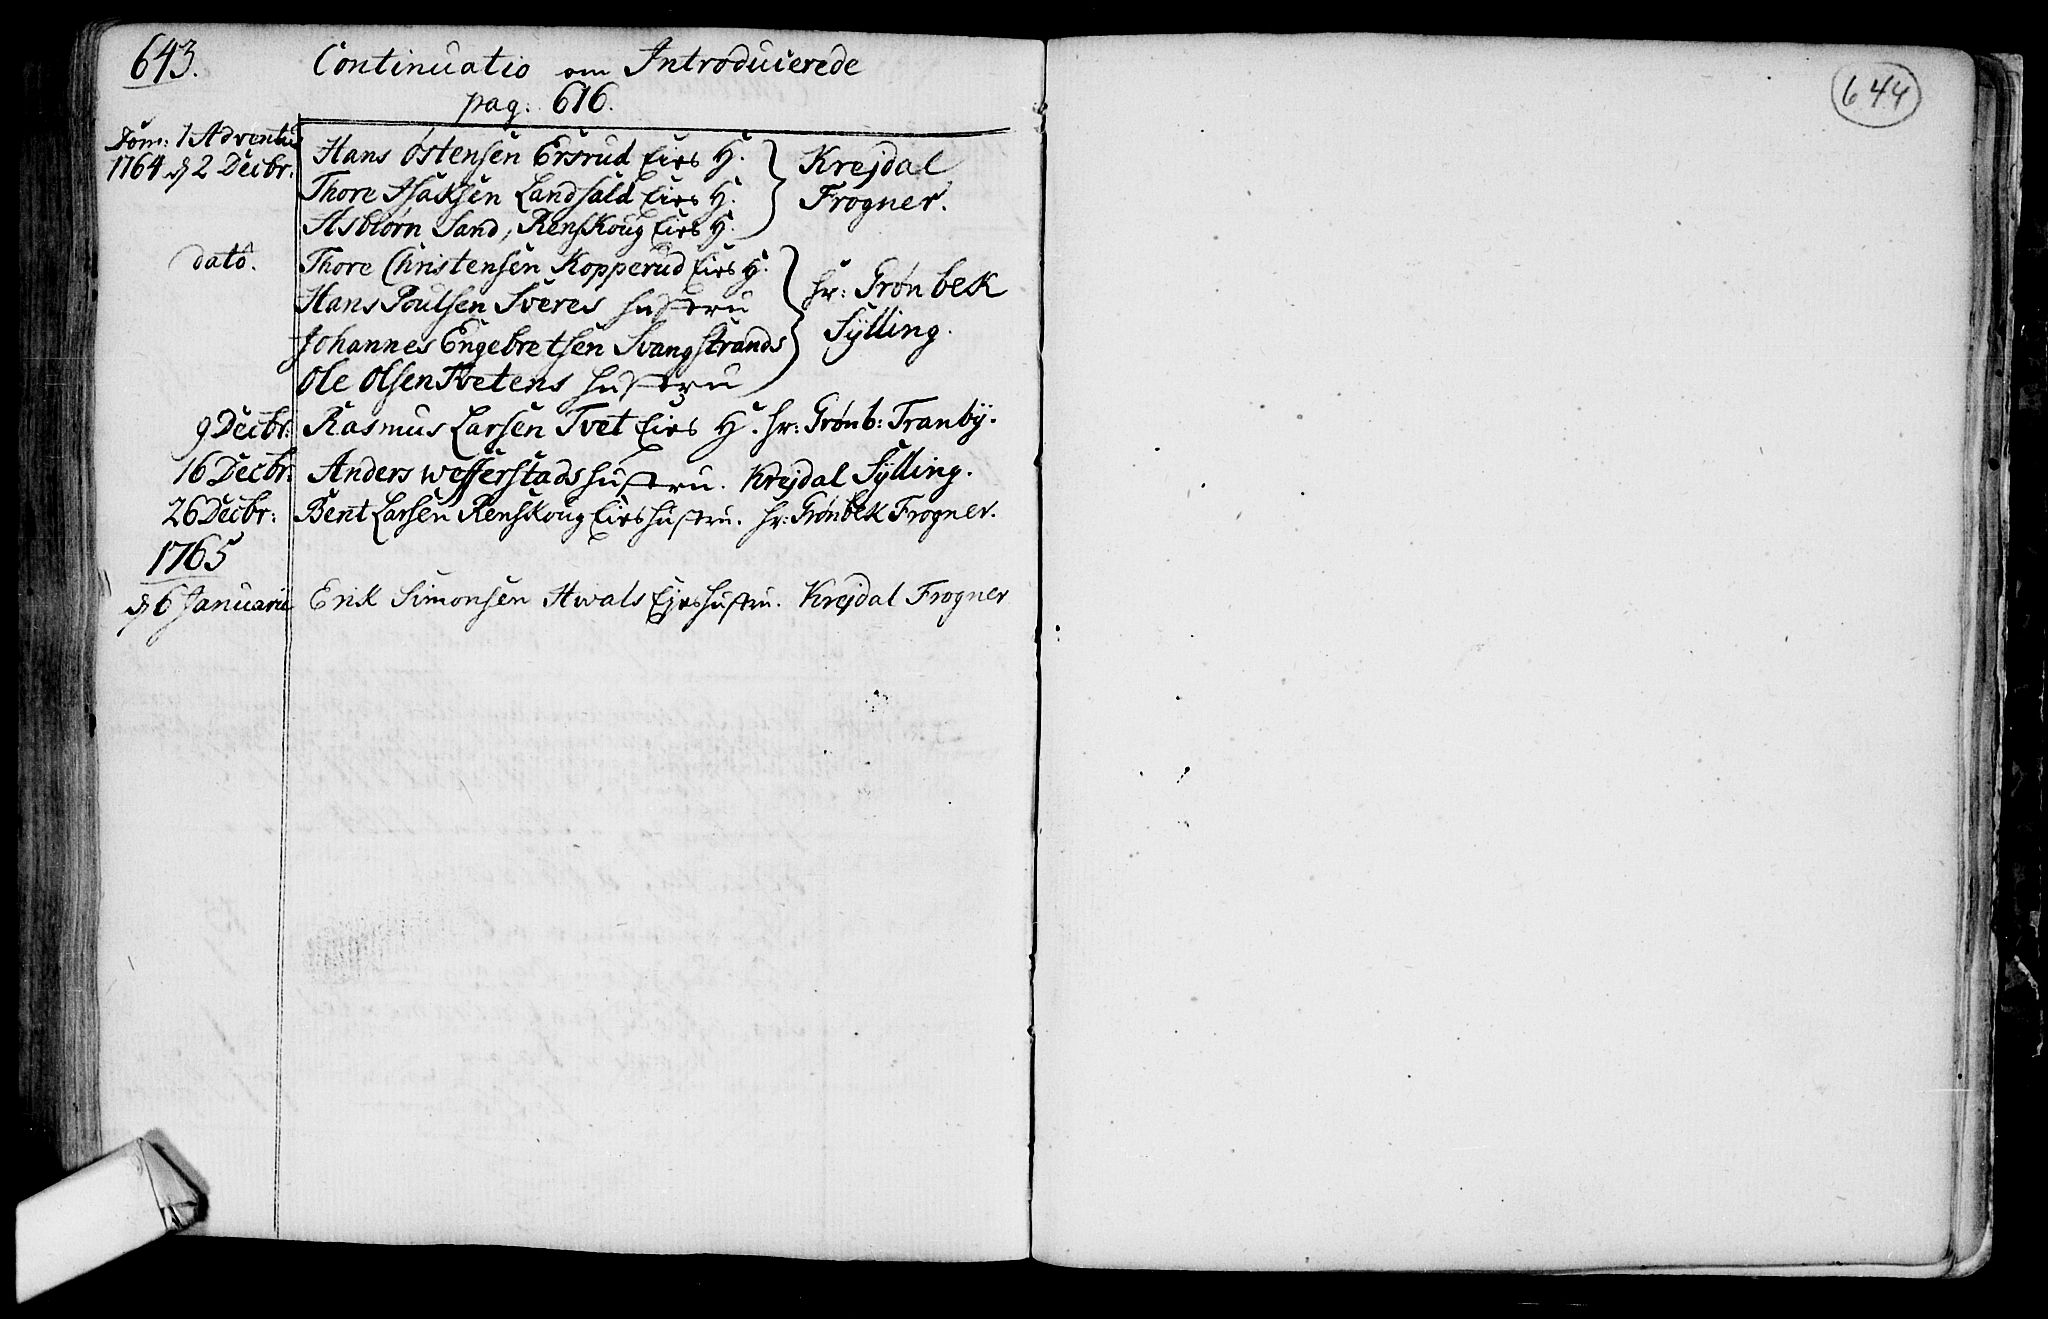 643.
Continuatio om Introducerede
pag: 616.
Dom: 1 Adventus
1764 d 2 Decbr.
Hans Østensen Ersrud Eies H.
Thore Isaksen Landfald Eies H.
Asbiørn Sand, Renskoug Eies H.
Krejdal
Frogner.
dato.
Thore Christensen Kopperud Eies H.
Hans Poulsen Sveres hustru
Johannes Engebretsen Svangstrands
Ole Olsen Tvetens hustru
hr: Grønbek
Sylling.
9 Decbr: Rasmus Larsen Tvet Eies H. hr: Grønb: Tranby.
16 Decbr: Anders Wefferstads hustru. Krejdal Sylling.
26 Decbr: Bent Larsen Renskoug Eies hustru. hr: Grønbek Frogner.
1765
d 6 Januarii Erik Simonsen Hvals Ejes hustru. Krejdal Frogner
644